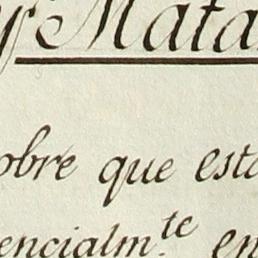 y Mata
obre que esta
encialm.te en